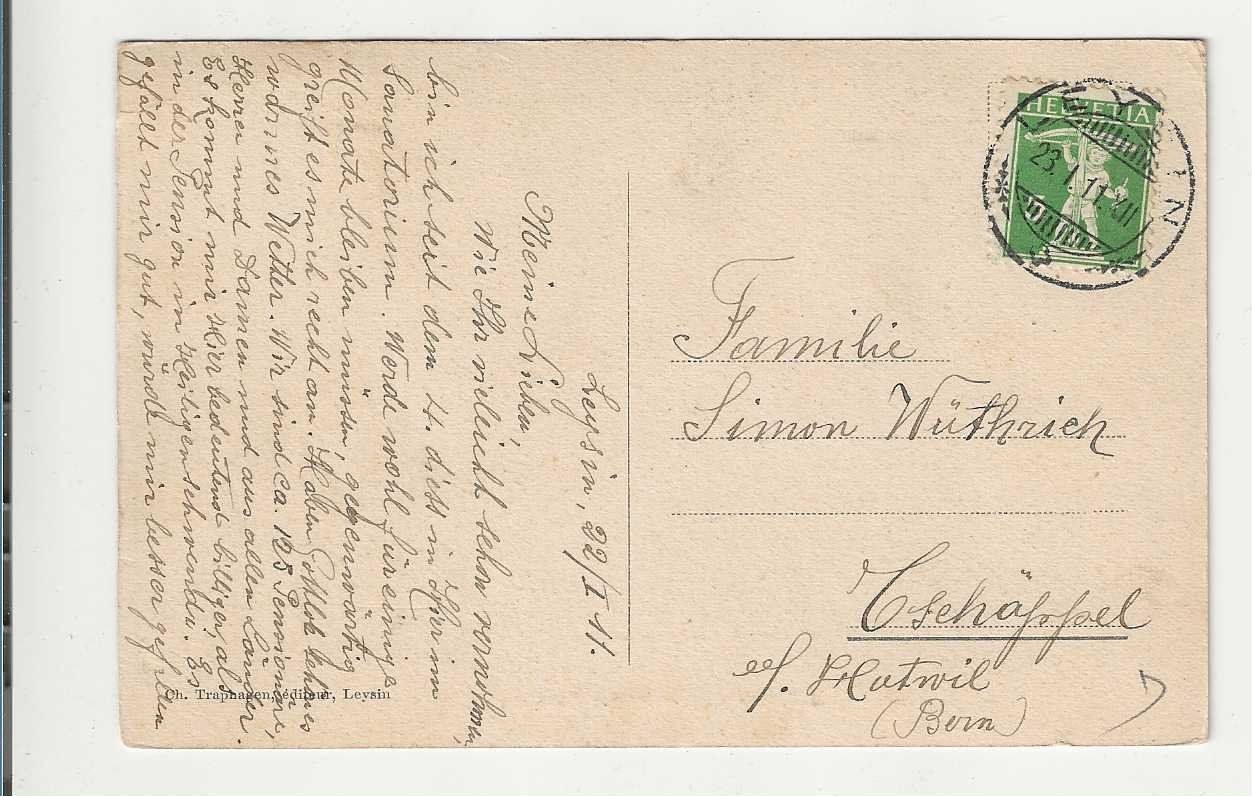 Leysin, 22/I 11.
Meine Lieben,
Wie Ihr vieleicht schon vernohmen,
bin ich seit dem 4. dies in Hier im
Sanatorium. Werde wohl für einige
Monate bleiben müssen, gegenwärtig
greift es mich recht an. Haben Gottlob schönes
warmes Wetter. Wir sind ca. 125 Pensionäre,
Herren und Damen und aus allen Länder.
Es kommt mir Hier bedeutend billiger als
in der Pension in Heiligenschwendi. Es
gefällt mir gut, würde mir besser gefallen
Ch. Traphagen, éditeur, Leysin
HELVETIA
LEYSIN
23. I. 11. XII
5
Familie
Simon Wüthrich
Tschäppel
p/. Hutwil
(Bern)